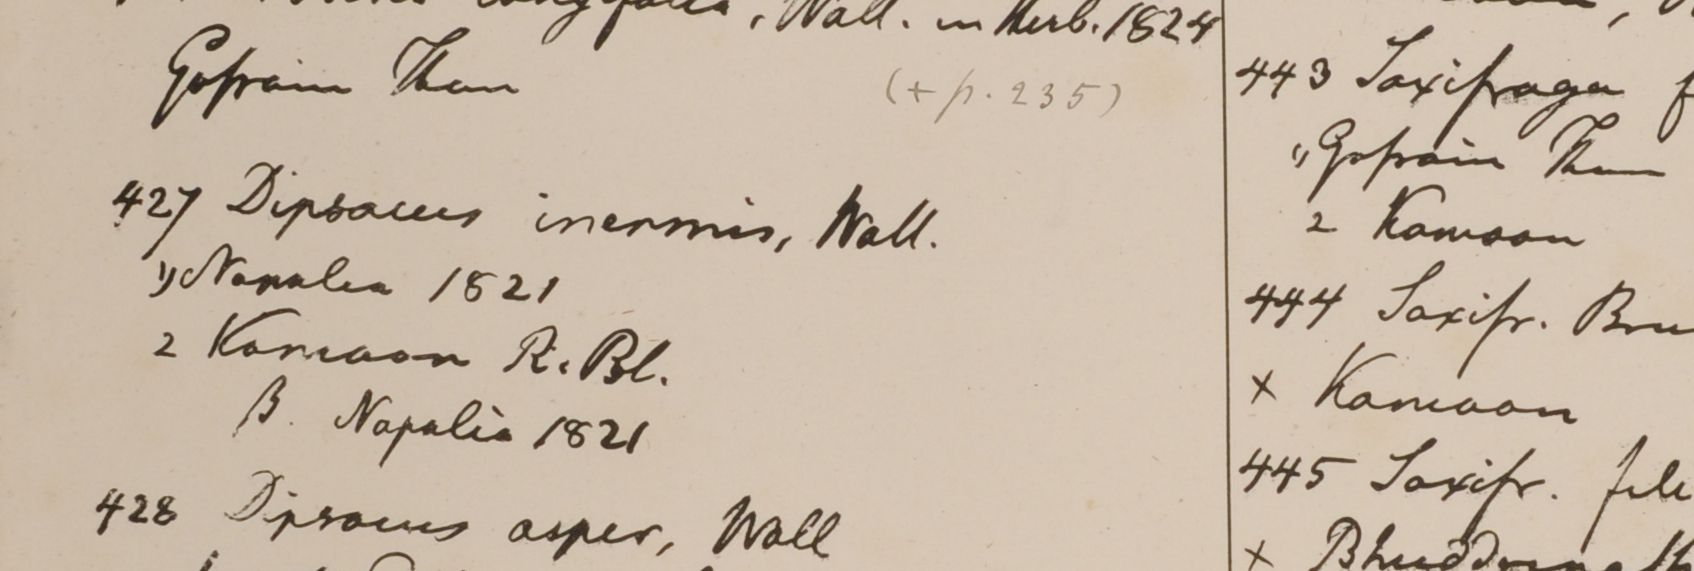 longifolia, Wall. in Herb. 1824
Gosrain Than
(+ p. 235)
427 Dipsacus inermis, Wall.
1) Napalia 1821
2 Kamaon R. Bl.
β. Napalia 1821
428 Dipsacus asper, Wall
443 Saxifraga f
1) Gosrain Than
2 Kamaon
444 Saxifr. Bru
+ Kamaon
445 Saxifr. fili
+ Bhuddrinath